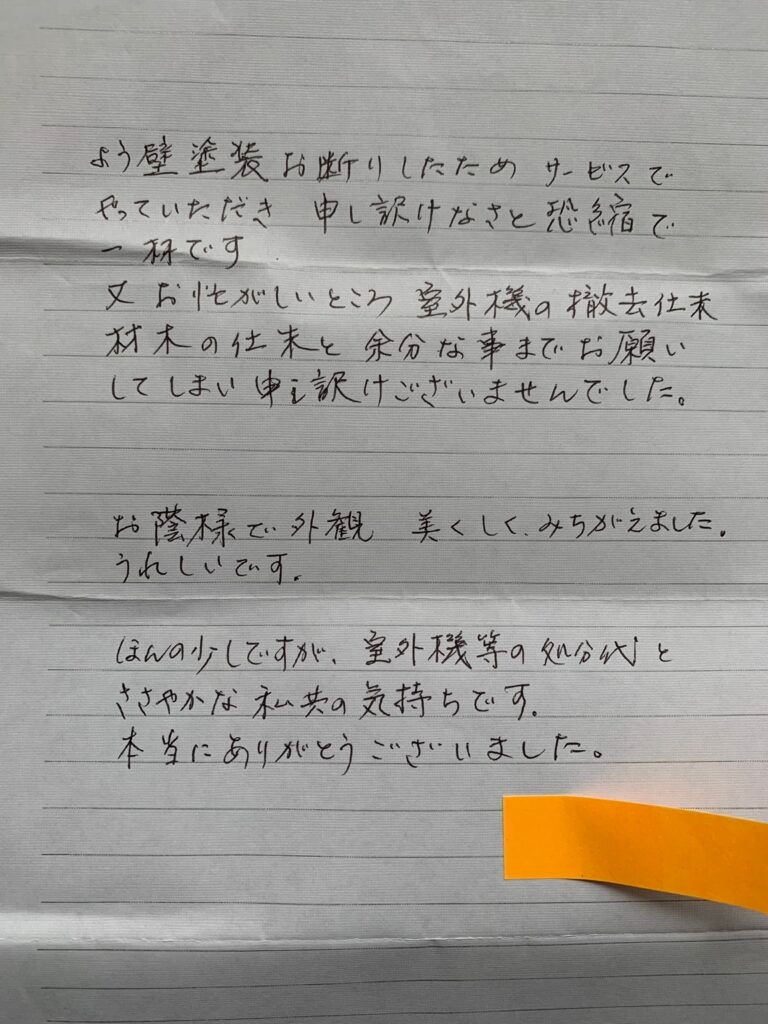 よう壁塗装お断りしたため サービスで
やっていただき 申し訳けなさと恐縮で
一杯です
又 お忙がしいところ 室外機の撤去仕末
材木の仕末と 余分な事までお願い
してしまい 申し訳けございませんでした。
お蔭様で外観 美くしく、みちがえました。
うれしいです。
ほんの少しですが、室外機等の処分代と
ささやかな私共の気持ちです。
本当にありがとうございました。